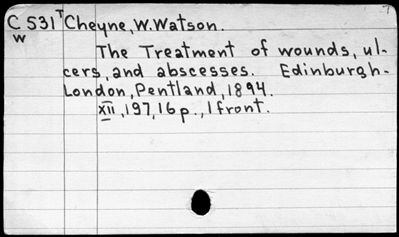 C 531 T Cheyne, W. Watson.
W
The Treatment of wounds, ul-
cers, and abscesses. Edinburgh-
London, Pentland, 1894.
XII, 197, 16 p., 1 front.